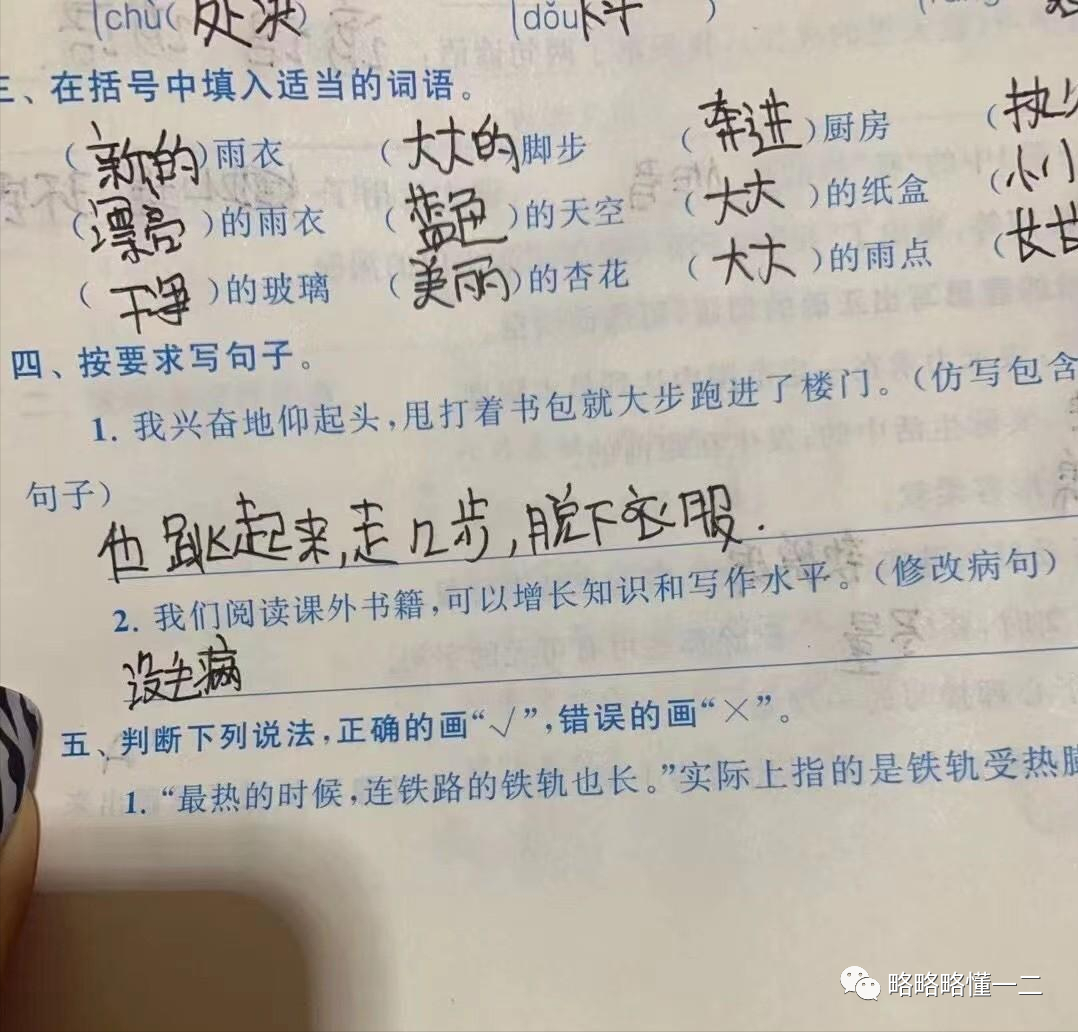 chǔ( 处决 ) dǒu(
三、在括号中填入适当的词语。
(新的)雨衣 (大大的)脚步 (奔进)厨房 (
(漂亮)的雨衣 (蓝色)的天空 (大大)的纸盒 (小小
(干净)的玻璃 (美丽)的杏花 (大大)的雨点 (
四、按要求写句子。
1. 我兴奋地仰起头,甩打着书包就大步跑进了楼门。(仿写包含
句子)
他跳起来,走几步,脱下衣服.
2. 我们阅读课外书籍,可以增长知识和写作水平。(修改病句)
没毛病
五、判断下列说法,正确的画“√”,错误的画“×”。
1. “最热的时候,连铁路的铁轨也长。”实际上指的是铁轨受热膨
略略略懂一二